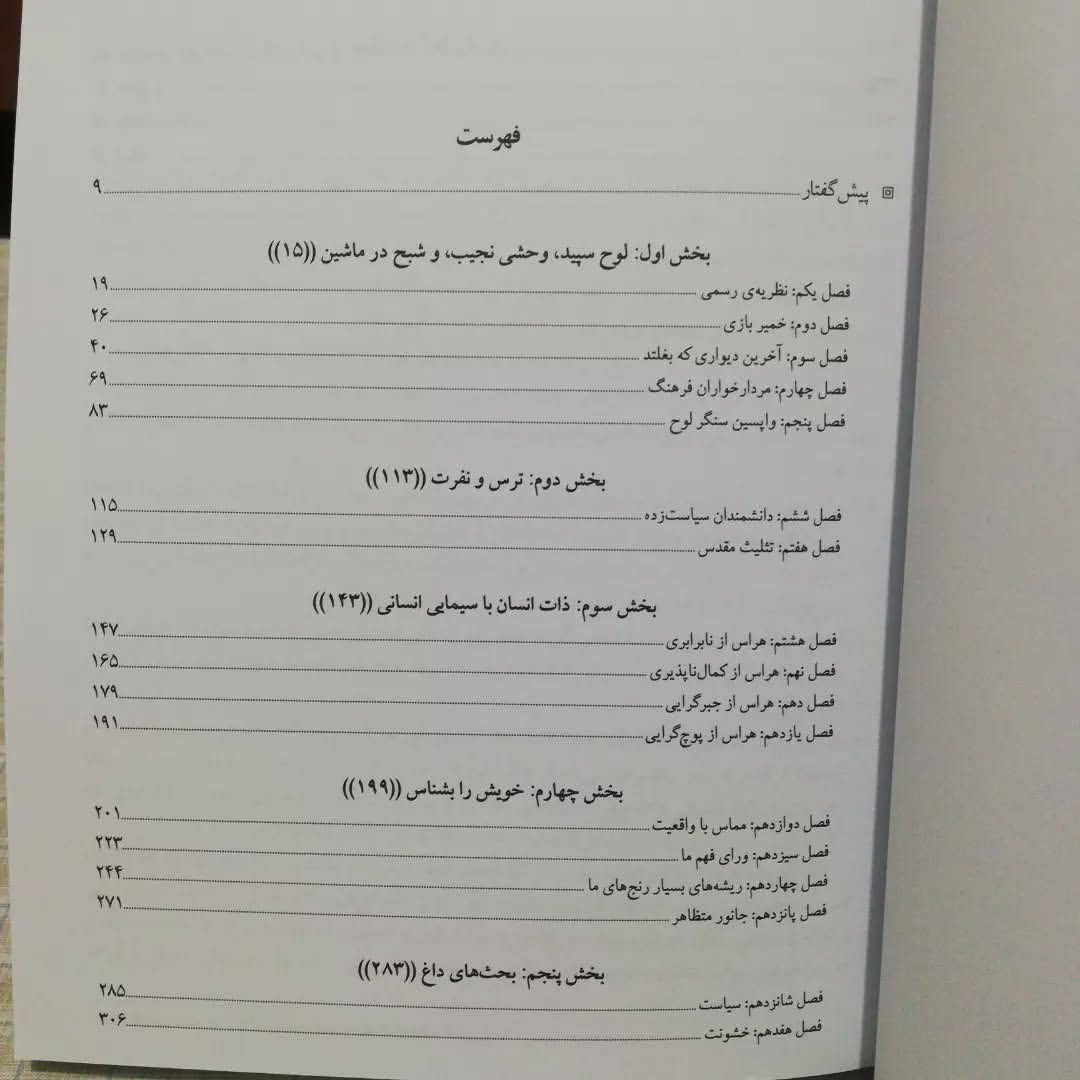 فهرست
پیش‌گفتار ۹
بخش اول: لوح سپید، وحشی نجیب، و شبح در ماشین ((۱۵))
فصل یکم: نظریه‌ی رسمی ۱۹
فصل دوم: خمیر بازی ۲۶
فصل سوم: آخرین دیواری که بغلتد ۴۰
فصل چهارم: مردارخواران فرهنگ ۶۹
فصل پنجم: واپسین سنگر لوح ۸۳
بخش دوم: ترس و نفرت ((۱۱۳))
فصل ششم: دانشمندان سیاست‌زده ۱۱۵
فصل هفتم: تثلیث مقدس ۱۲۹
بخش سوم: ذات انسان با سیمایی انسانی ((۱۴۳))
فصل هشتم: هراس از نابرابری ۱۴۷
فصل نهم: هراس از کمال‌ناپذیری ۱۶۵
فصل دهم: هراس از جبرگرایی ۱۷۹
فصل یازدهم: هراس از پوچ‌گرایی ۱۹۱
بخش چهارم: خویش را بشناس ((۱۹۹))
فصل دوازدهم: مماس با واقعیت ۲۰۱
فصل سیزدهم: ورای فهم ما ۲۲۳
فصل چهاردهم: ریشه‌های بسیار رنج‌های ما ۲۴۴
فصل پانزدهم: جانور متظاهر ۲۷۱
بخش پنجم: بحث‌های داغ ((۲۸۳))
فصل شانزدهم: سیاست ۲۸۵
فصل هفدهم: خشونت ۳۰۶